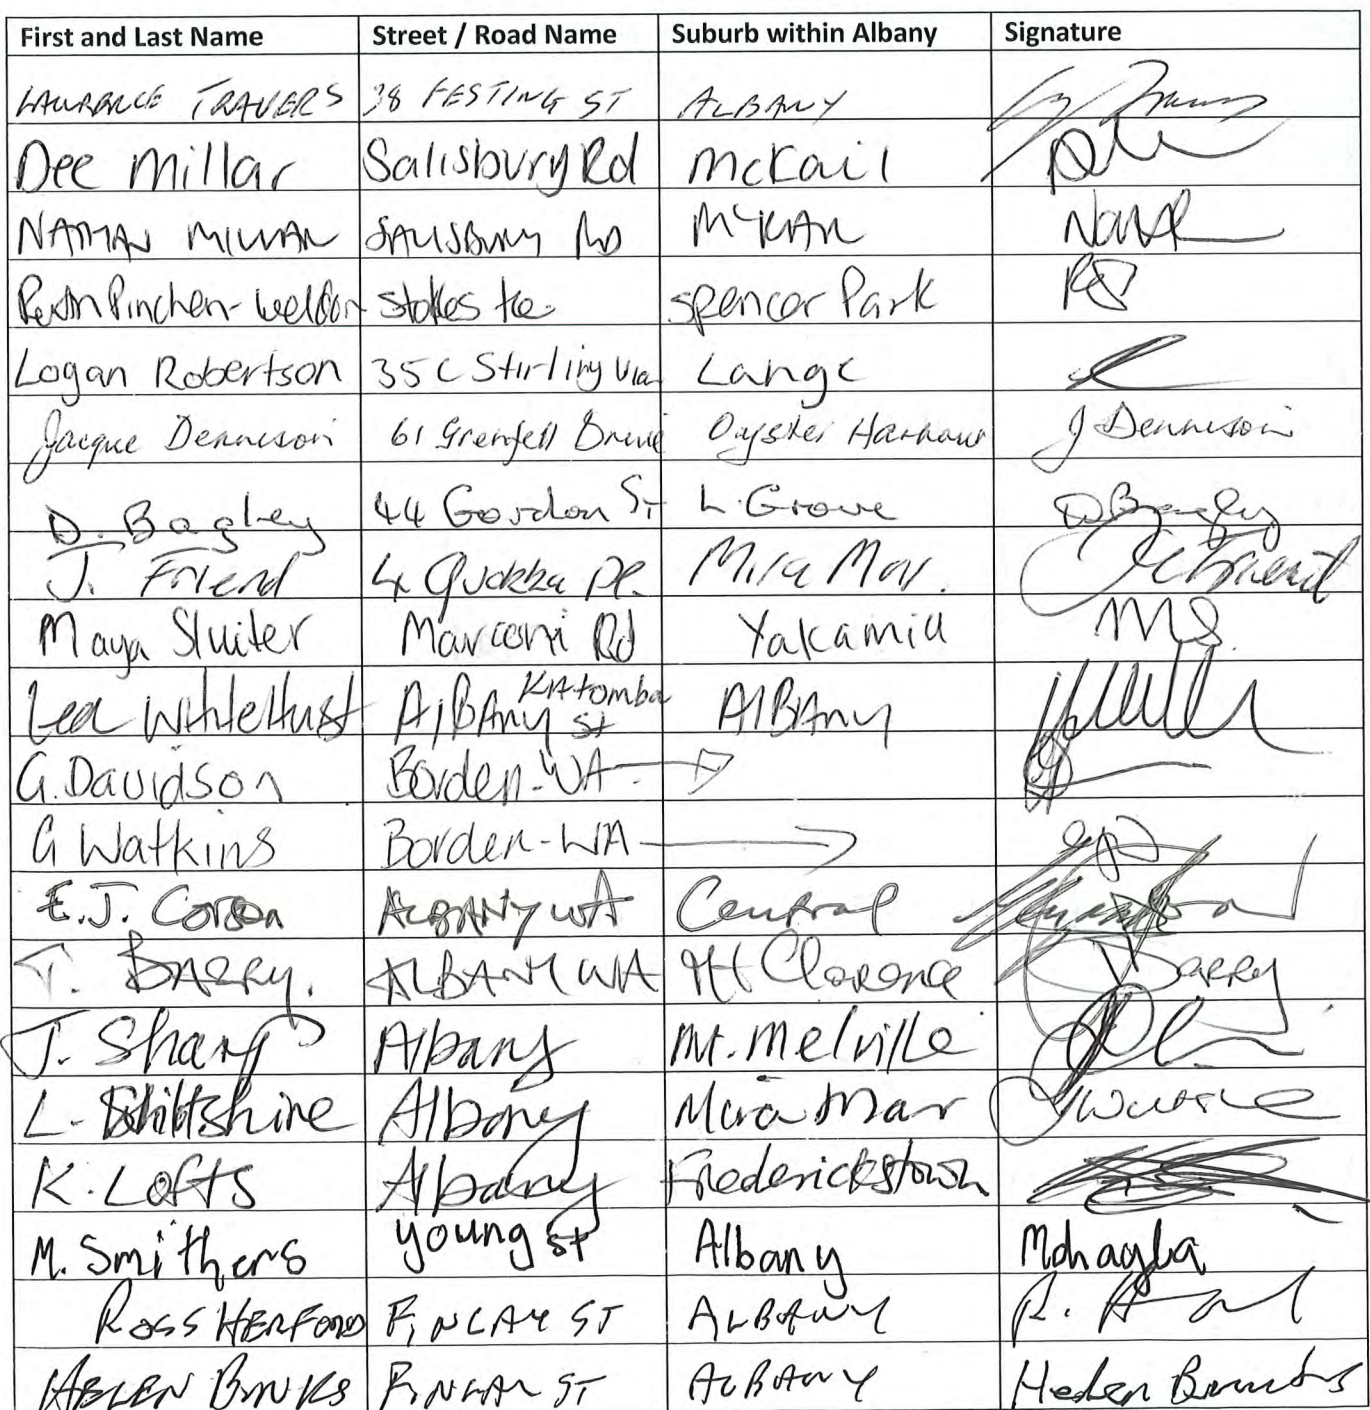 First and Last Name Street / Road Name Suburb within Albany Signature
LAURENCE TRAVERS 38 FESTING ST ALBANY
Dee Millar Salisbury Rd McKail
NATHAN MILLAR SALISBURY RD McKAIL
Pinchen-Weldon Stokes spencer Park
Logan Robertson 35C Stirling View Lange
Jacque Dennison 61 Grenfell Drive Oyster Harbour J Dennison
D. Bagley 44 Gordon St L. Grove D Bagley
J. Friend 4 Quokka Pl. Mira Mar. Friend
Maya Sluiter Marconi Rd Yakamia MS
Lea WHiteHust AlBAny Katomba St AlBAny
G. Davidson Borden-WA →
G Watkins Borden-WA →
E.J. ALBANY WA Central
T. BARRY. ALBANY WA Mt Clarence Barry
J. Sharp Albany Mt. Melville
L. Wiltshire Albany Mira Mar
K. Lofts Albany Frederickstown
M. Smithers Young St Albany
ROSS HERFORD FINLAY ST ALBANY
HELEN BINKS FINLAY ST ALBANY Helen